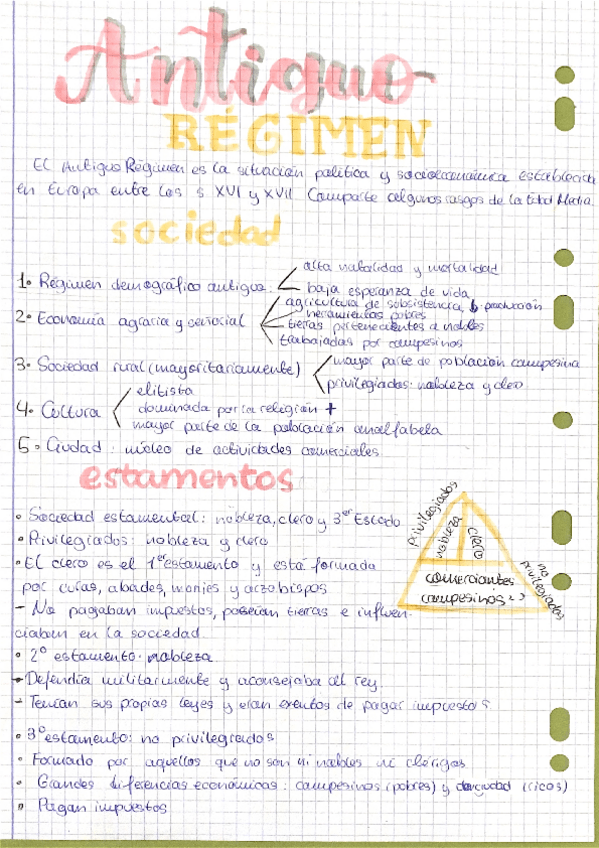 Antiguo
RÉGIMEN
El Antiguo Régimen es la situación política y socioeconómica establecida
en Europa entre los s XVI y XVII. Comparte algunos rasgos de la Edad Media.
sociedad
1. Régimen demográfico antiguo:
alta natalidad y mortalidad
baja esperanza de vida
2. Economía agraria y señorial
agricultura de subsistencia, b. producción
herramientas pobres
tierras pertenecientes a nobles
trabajadas por campesinos
3. Sociedad rural (mayoritariamente)
mayor parte de población campesina
privilegiados: nobleza y clero
4. Cultura
elitista
dominada por la religión +
mayor parte de la población analfabeta
5. Ciudad: núcleo de actividades comerciales
estamentos
• Sociedad estamental: nobleza, clero y 3er Estado
• Privilegiados: nobleza y clero
• El clero es el 1er estamento y está formada
por curas, abades, monjes y arzobispos
- No pagaban impuestos, poseían tierras e influen-
ciaban en la sociedad
• 2º estamento: nobleza
- Defendía militarmente y aconsejaba al rey.
- Tenían sus propias leyes y eran exentos de pagar impuestos
• 3º estamento: no privilegiados
• Formado por aquellos que no son ni nobles ni clérigos
• Grandes diferencias económicas: campesinos (pobres) y ciudad (ricos)
• Pagan impuestos
privilegiados
nobleza
clero
no privilegiados
comerciantes
campesinos